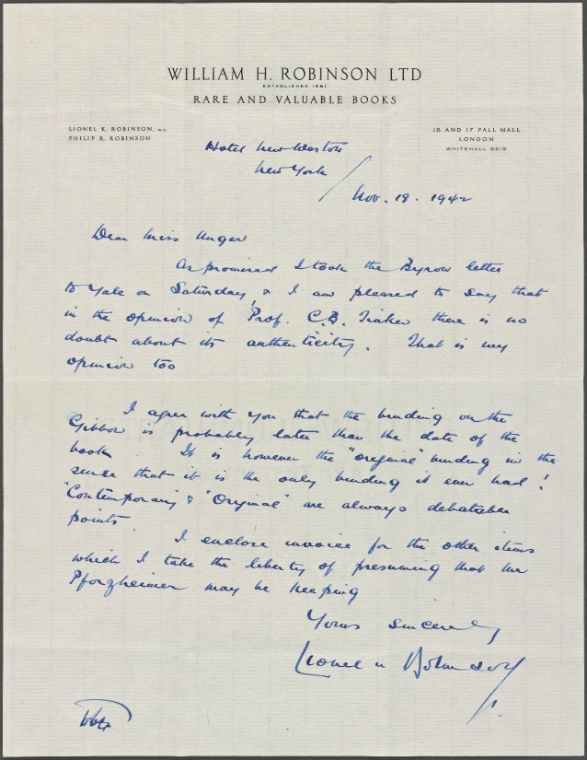 WILLIAM H. ROBINSON LTD
ESTABLISHED 1881
RARE AND VALUABLE BOOKS
LIONEL K. ROBINSON, M.C.
PHILIP R. ROBINSON
16 AND 17 PALL MALL
LONDON
WHITEHALL
Hotel New Weston
New York
Nov. 19. 1942
Dear Miss Unger
As promised I took the Byron letter
to Yale on Saturday, & I am pleased to say that
in the opinion of Prof. C.B. Tinker there is no
doubt about its authenticity. That is my
opinion too
I agree with you that the binding on the
Gibbon is probably later than the date of the
book. It is however the "original" binding in the
sense that it is the only binding it ever had!
"Contemporary" & "Original" are always debateable
points.
I enclose invoice for the other items
which I take the liberty of presuming that Mr
Pforzheimer may be keeping
Yours sincerely
Lionel Robinson